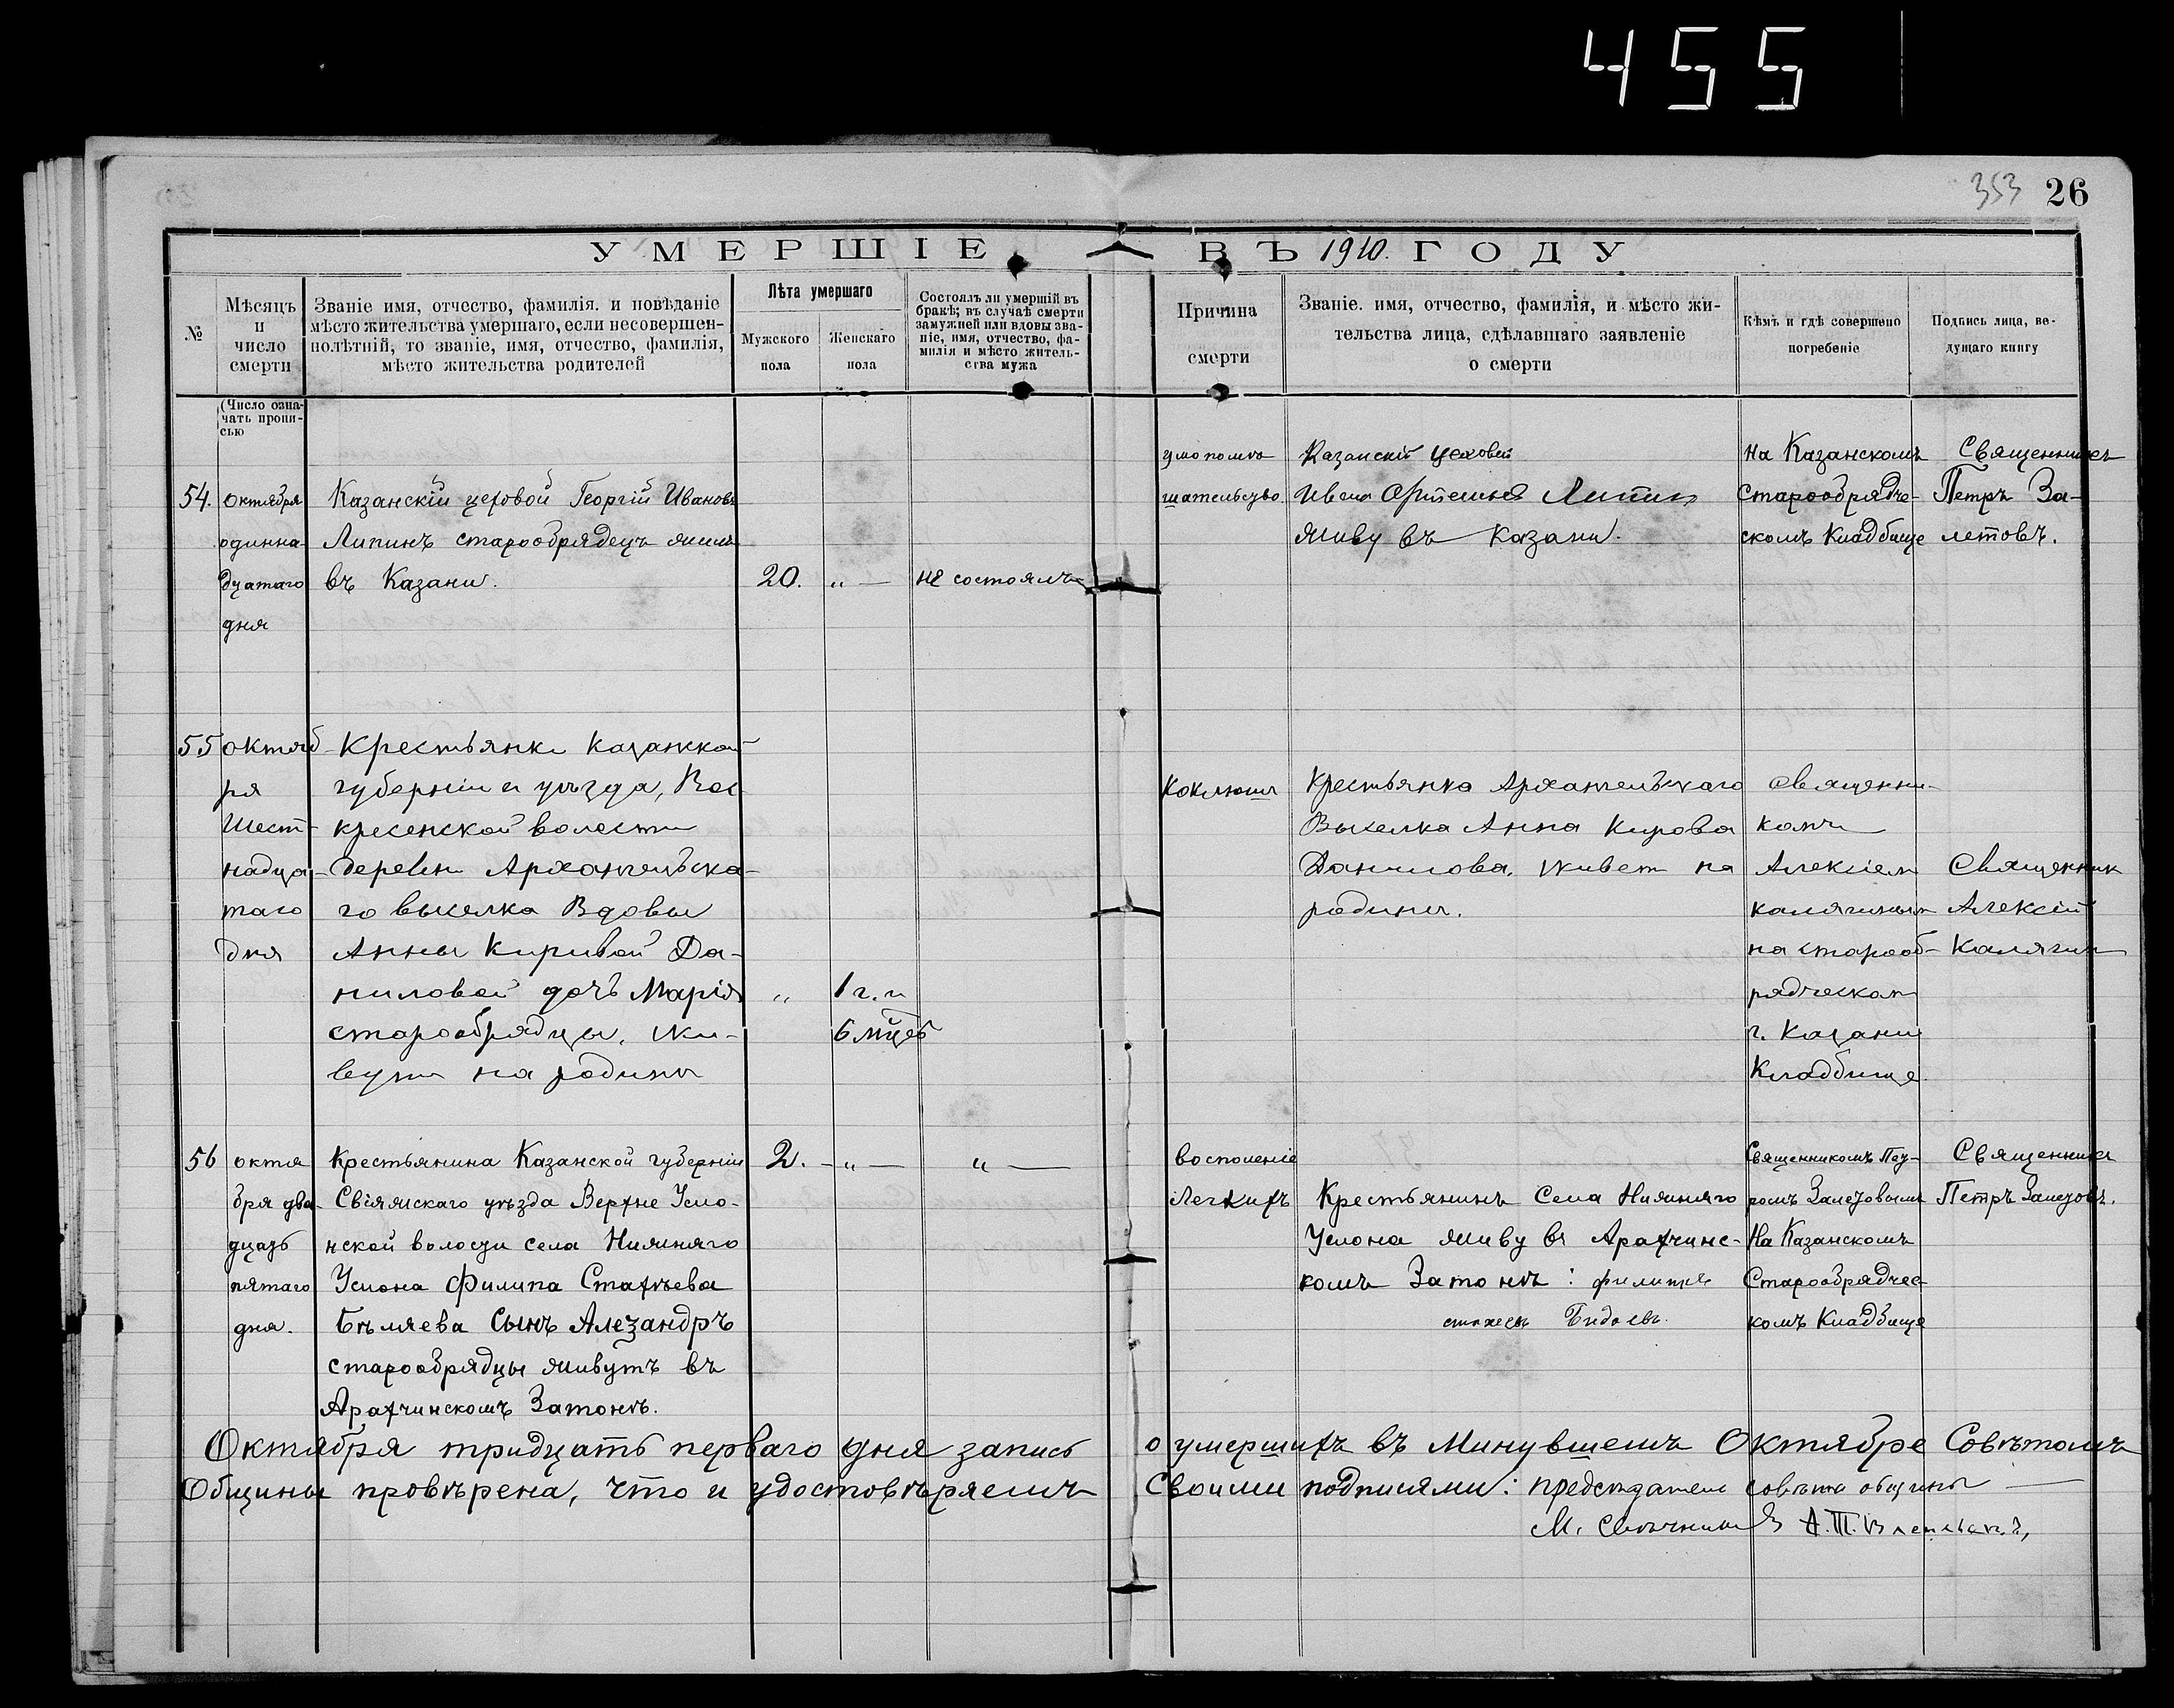 455
353 26
УМЕРШІЕ ВЪ 1910. ГОДУ
№
Мѣсяцъ
и
число
смерти
Званіе имя, отчество, фамилія. и повѣданіе
мѣсто жительства умершаго, если несовершен-
нолѣтній, то званіе, имя, отчество, фамилія,
мѣсто жительства родителей
Лѣта умершаго
Мужского
пола
Женскаго
пола
Состоялъ ли умершій въ
бракѣ; въ случаѣ смерти
замужней или вдовы зва-
ніе, имя, отчество, фа-
милія и мѣсто житель-
ства мужа
Причина
смерти
Званіе. имя, отчество, фамилія, и мѣсто жи-
тельства лица, сдѣлавшаго заявленіе
о смерти
Кѣмъ и гдѣ совершено
погребеніе
Подпись лица, ве-
дущаго книгу
(Число озна-
чать пропи-
сью
54.
октября
одинна-
дцатаго
дня
Казанскій цеховой Георгій Ивановъ
Липинъ старообрядецъ жилъ
въ Казани.
20.
„ —
не состоялъ
умопомѣ
шательство.
Казанскій цеховой
Иванъ Липинъ
живу въ Казани.
на Казанскомъ
Старообрядче-
скомъ Кладбище
Священникъ
Петръ За-
летовъ.
55
октяб-
ря
шест-
надца-
таго
дня
Крестьянки Казанской
губерніи и уѣзда, Вос
кресенской волости
деревни Архангельска-
го выселка Вдовы
Анны Кировой Да-
ниловой дочь Марія
старообрядцы, жи-
вутъ на родинѣ
„
1 г. и
6 мцеб
Коклюшъ
Крестьянка Архангельскаго
Выселка Анна Кирова
Данилова. живетъ на
родинѣ.
Священни-
комъ
Алексіем
Калягиным
на старооб-
рядческом
г. Казани
Кладбище.
Священник
Алексій
Калягин
56
октя
бря два-
дцать
пятаго
дня.
Крестьянина Казанской губерніи
Свіяжскаго уѣзда Верхне Усло-
нской волости села Нижняго
Услона Филипа Стахѣева
Бѣляева Сынъ Алезандръ
старообрядцы живутъ въ
Арахчинскомъ Затонѣ.
2.
— „ —
„ —
восполеніе
Легкихъ
Крестьянинъ Села Нижняго
Услона живу въ Арахчинс-
комъ Затонѣ: филипъ
стахеевъ
Священникомъ Пет-
ромъ Залетовымъ
На Казанскомъ
Старообрядчес-
комъ Кладбище
Священникъ
Петръ Залетовъ.
Октября тридцать перваго дня запись о умершихъ въ Минувшемъ Октябре Совѣтомъ
Общины провѣрена, что и удостовѣряемъ Своими подписями: председатель совѣта общины —
М.